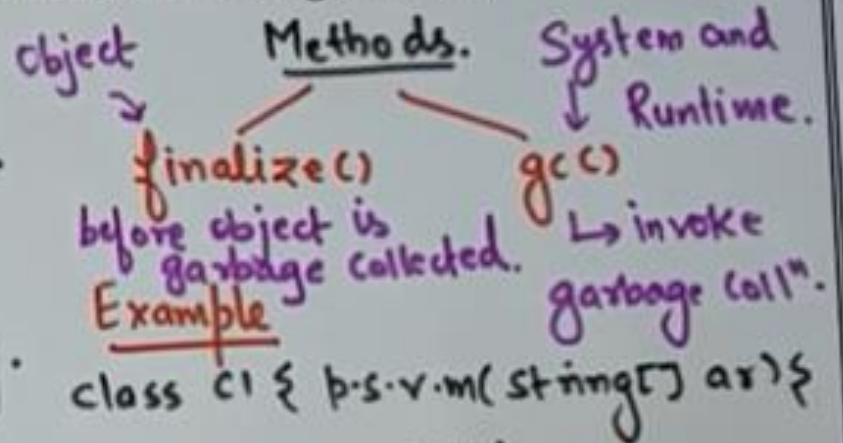 Object
Methods.
System and
Runtime.
finalize()
gc()
before object is
garbage collected.
↳ invoke
garbage collⁿ.
Example
class C1 { p.s.v.m( string[] ar) {